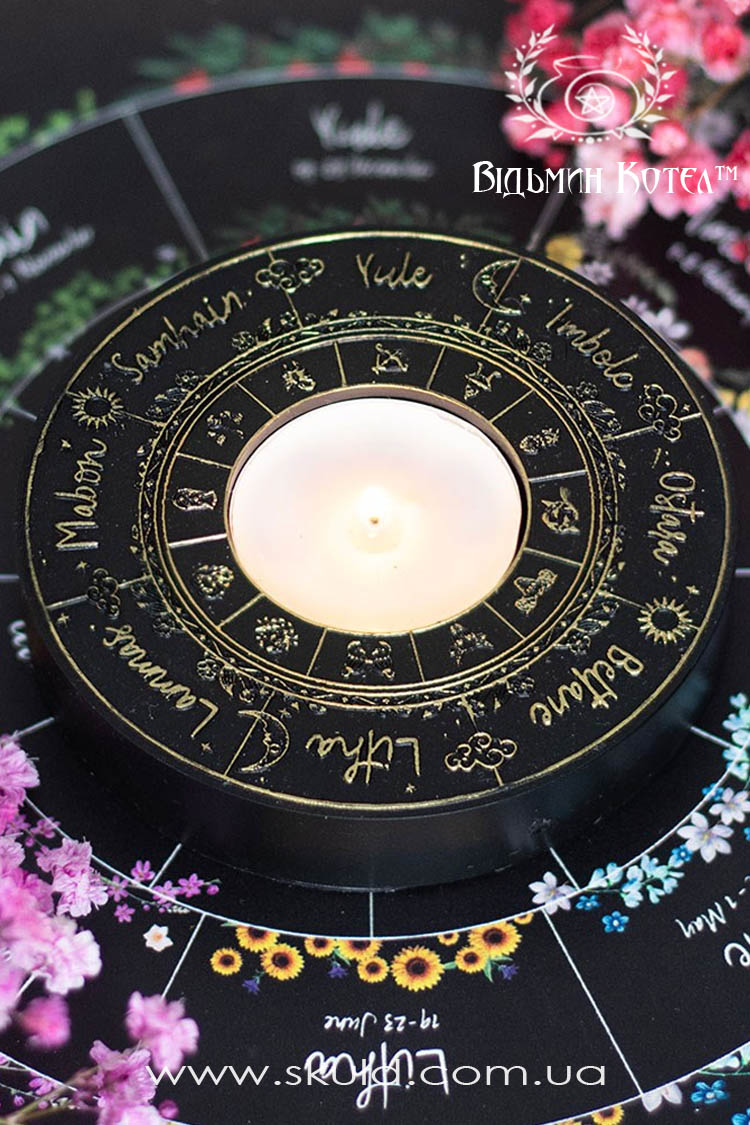 Відьмин Котел™
Yule
Yule
Imbolc
Ostara
Beltane
Litha
Lammas
Mabon
Samhain
1 May
19-23 June
Litha
www.skuld.com.ua